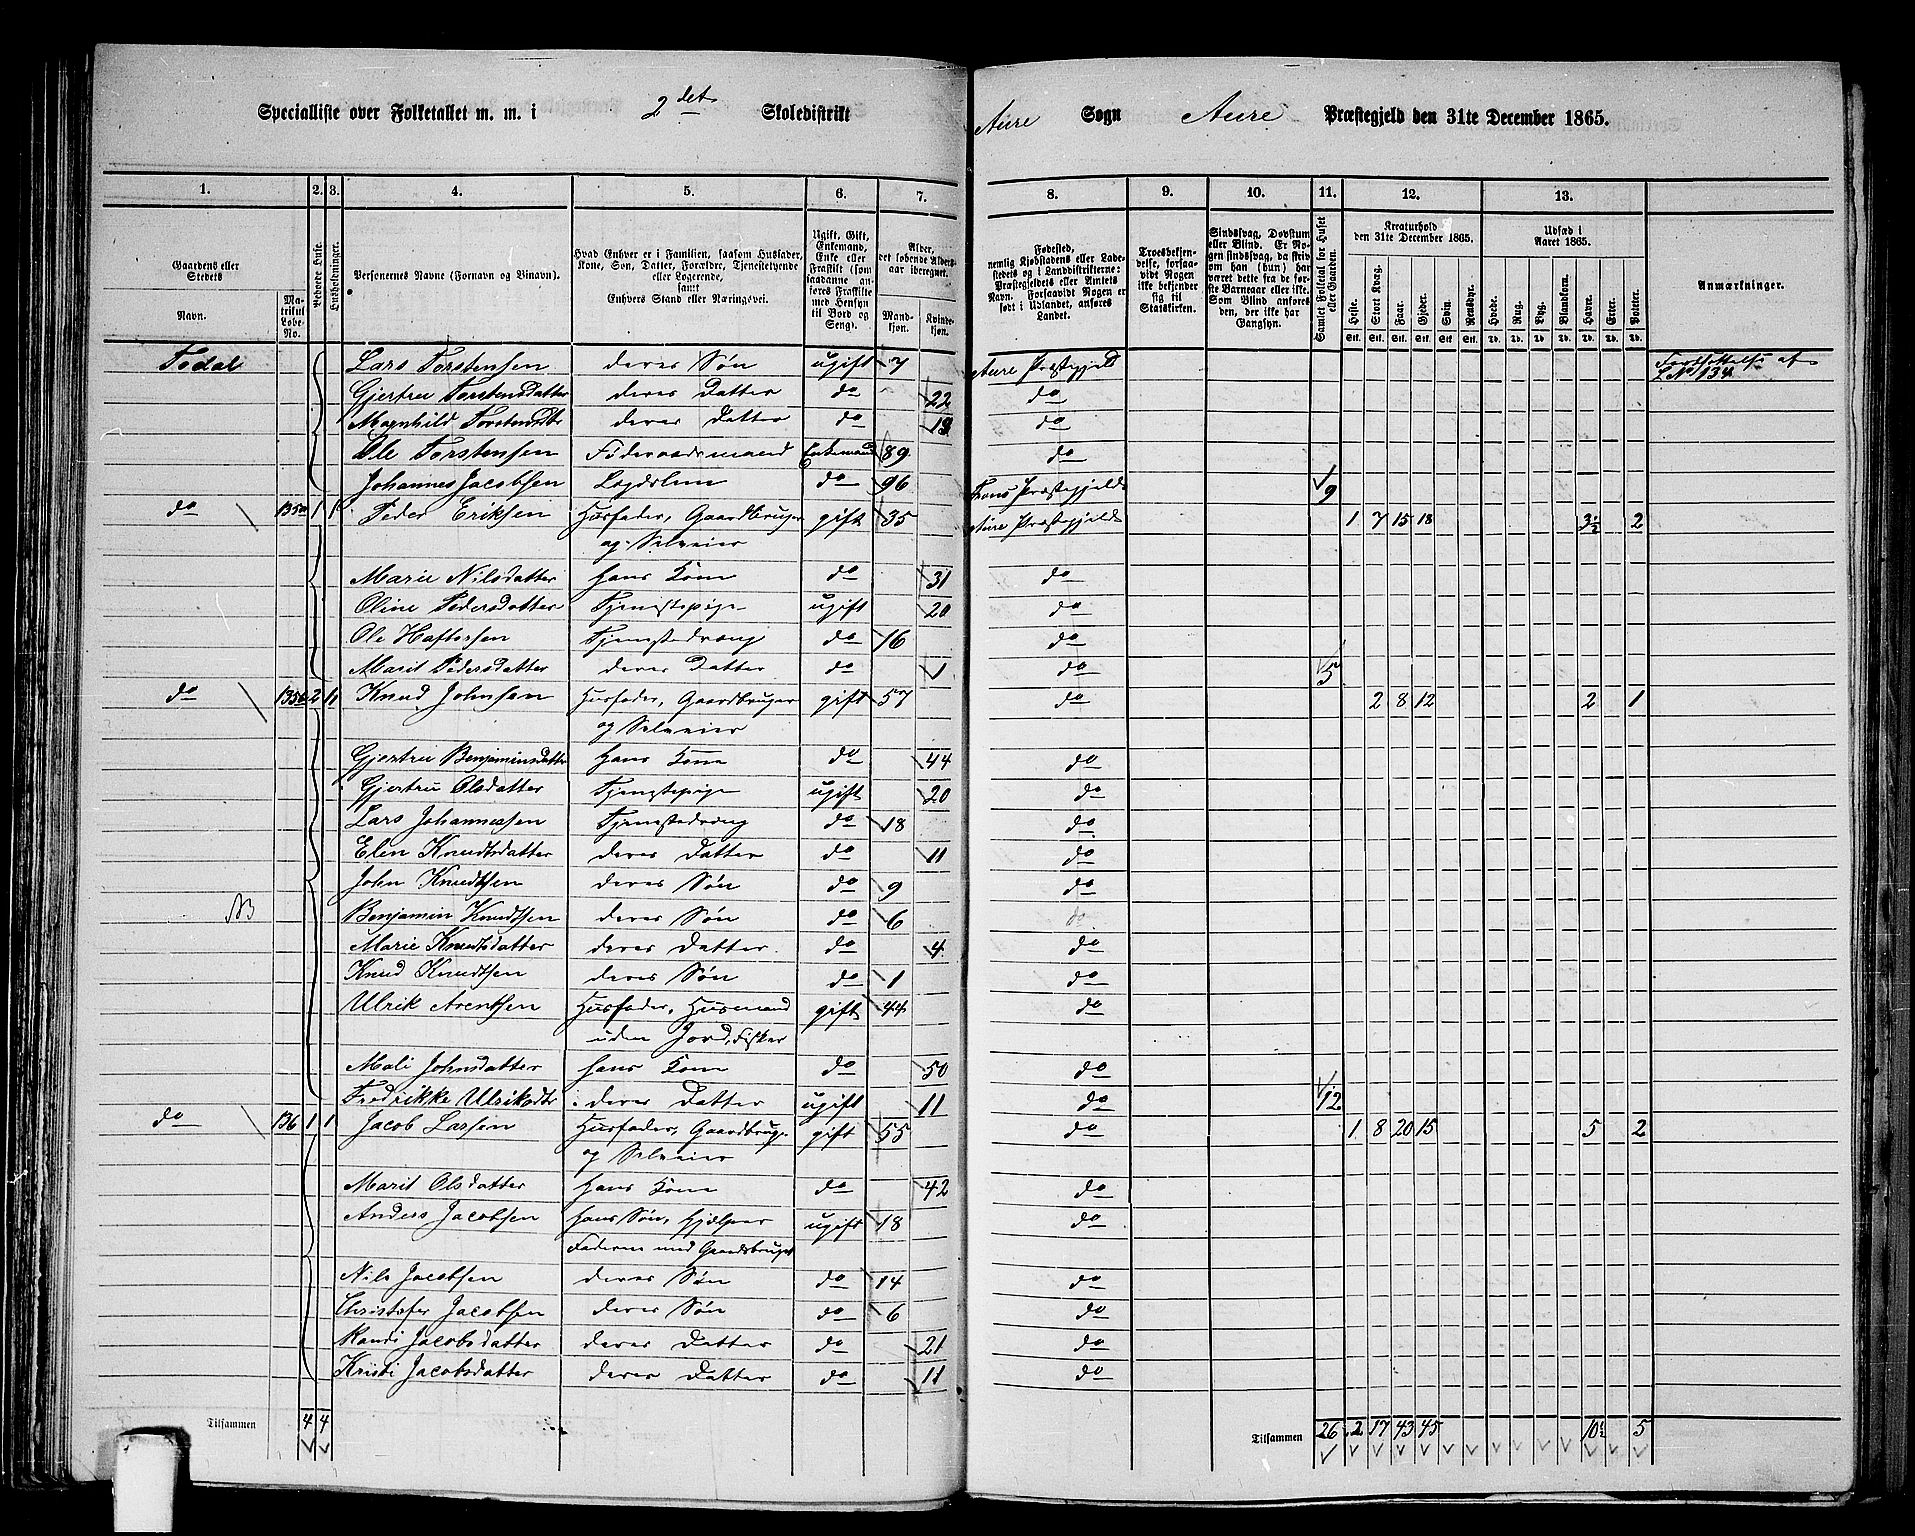 Specialliste over Folketallet m. m. i 2det Skoledistrikt Aure Sogn Aure Præstegjeld den 31te December 1865.
1. 2. 3. 4. 5. 6. 7. 8. 9. 10. 11. 12. 13.
Gaardens eller Stedets Navn. Matrikul Løbe-No. Beboede Huse. Husholdninger.
Personernes Navne (Fornavn og Binavn).
Hvad Enhver er i Familien, saasom Husfader, Kone, Søn, Datter, Forældre, Tjenestetyende eller Logerende, samt Enhvers Stand eller Næringsvei.
Ugift, Gift, Enkemand, Enke eller Fraskilt (som saadanne anføres Fraskilte med Hensyn til Bord og Seng).
Alder, det løbende Alders-aar iberegnet. Mandkjøn. Kvindekjøn.
Fødested, nemlig Kjøbstadens eller Ladestedets og i Landdistrikterne: Præstegjeldets eller Amtets Navn. Forsaavidt Nogen er født i Udlandet, anføres Landet.
Troesbekjendelse, forsaavidt Nogen ikke bekjender sig til Statskirken.
Sindssvag, Døvstum eller Blind. Er Nogen sindssvag, da skrives om han (hun) har været dette fra de første Barneaar eller ikke. Som Blind anføres den, der ikke har Gangsyn.
Samlet Folketal for Huset eller Gaarden.
Kreaturhold den 31te December 1865. Heste. Stort Kvæg. Faar. Gjeder. Svin. Rensdyr.
Udsæd i Aaret 1865. Hvede. Rug. Byg. Blandkorn. Havre. Erter. Poteter.
Anmærkninger.
Todal Lars Torstensen deres Søn ugift 7 Aure Præstegjeld Fortsættelse af L.No 134
Gjertru Torstensdatter deres Datter do 22 do
Magnhild Torstensdtr deres Datter do 19 do
Ole Torstensen Föderaadsmand Enkemand 89 do
Johannes Jacobsen Lægdslem do 96 Præstegjeld 9
do 135a 1 1 Peder Eriksen Husfader, Gaardbruger gift 35 Aure Præstegjeld 1 7 15 18 3½ 2
og Selveier
Marie Nilsdatter hans Kone do 31 do
Oline Pedersdatter Tjenestepige ugift 20 do
Ole Haftorsen Tjenestedreng do 16 do
Marit Pedersdatter deres Datter do 1 do 5
do 135b 2 11 Knud Johnsen Husfader, Gaardbruger gift 57 do 2 8 12 2 1
og Selveier
Gjertru Benjaminsdatter hans Kone do 44 do
Gjertru Olsdatter Tjenestepige ugift 20 do
Lars Johannessen Tjenestedreng do 18 do
Elen Knudtsdatter deres Datter do 11 do
John Knudtsen deres Søn do 9 do
NB Benjamin Knudtsen deres Søn do 6 do
Marie Knudtsdatter deres Datter do 4 do
Knud Knudtsen deres Søn do 1 do
Ulrik Arentsen Husfader, Husmand gift 44 do
uden Jord, Fisker
Mali Johnsdatter hans Kone do 50 do
Fredrikke Ulriksdtr deres Datter ugift 11 do 12
do 136 1 1 Jacob Larsen Husfader, Gaardbrug. gift 55 do 1 8 20 15 5 2
og Selveier
Marit Olsdatter hans Kone do 42 do
Anders Jacobsen hans Søn, hjælper ugift 18 do
Faderen med Gaardsbruget
Nils Jacobsen deres Søn do 14 do
Christofer Jacobsen deres Søn do 6 do
Randi Jacobsdatter deres Datter do 21 do
Kristi Jacobsdatter deres Datter do 11 do
Tilsammen 4 4 Tilsammen 26 2 17 43 45 10½ 5